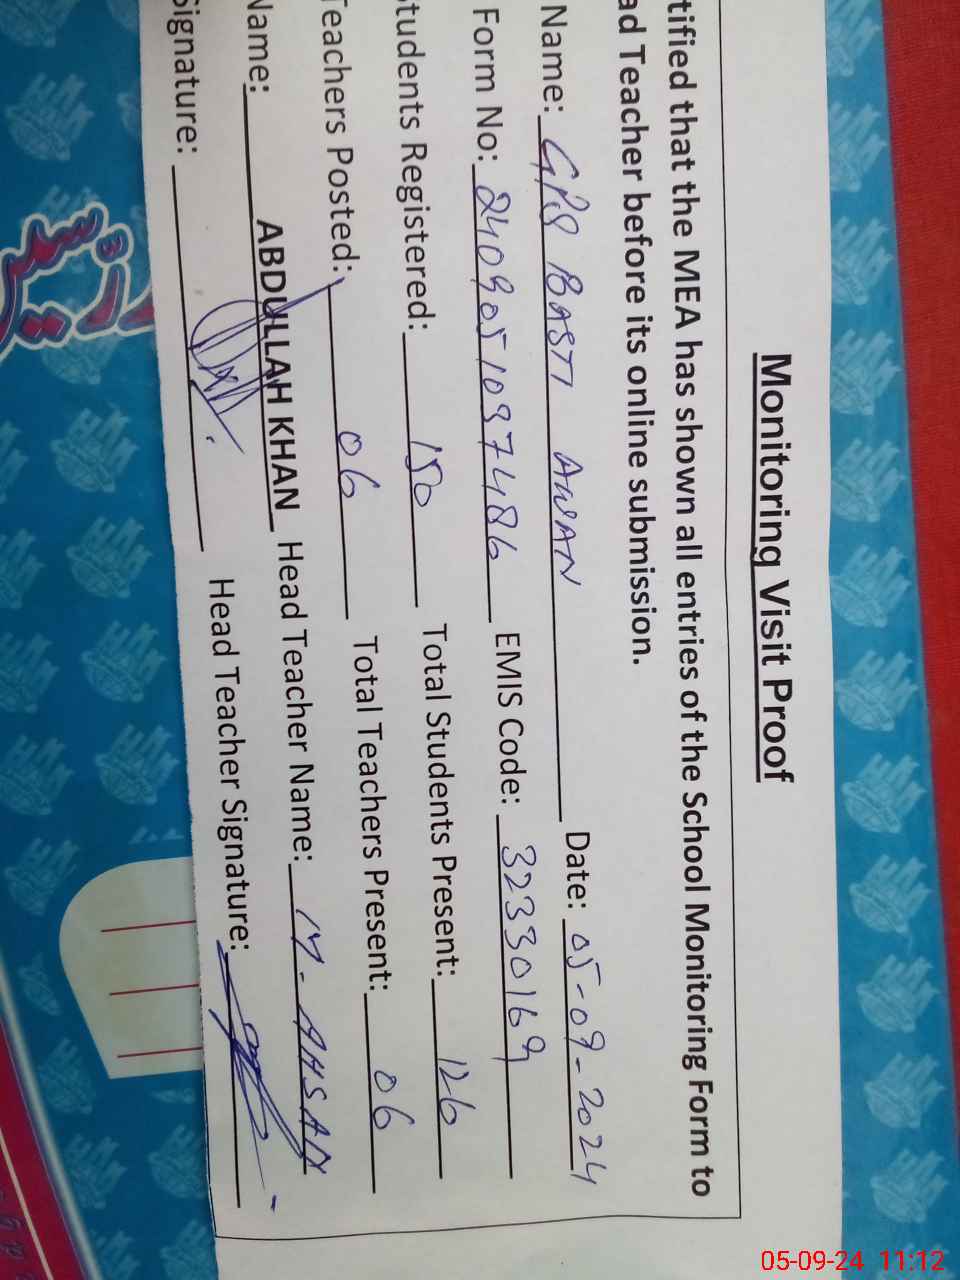 Monitoring Visit Proof
tified that the MEA has shown all entries of the School Monitoring Form to
ad Teacher before its online submission.
Name: GPS BASTI AWAN Date: 05-09-2024
Form No: 2409051097486 EMIS Code: 32330169
tudents Registered: 150 Total Students Present: 126
Teachers Posted: 06 Total Teachers Present: 06
Name: ABDULLAH KHAN Head Teacher Name: M-AHSAN
Signature: Head Teacher Signature:
05-09-24 11:12